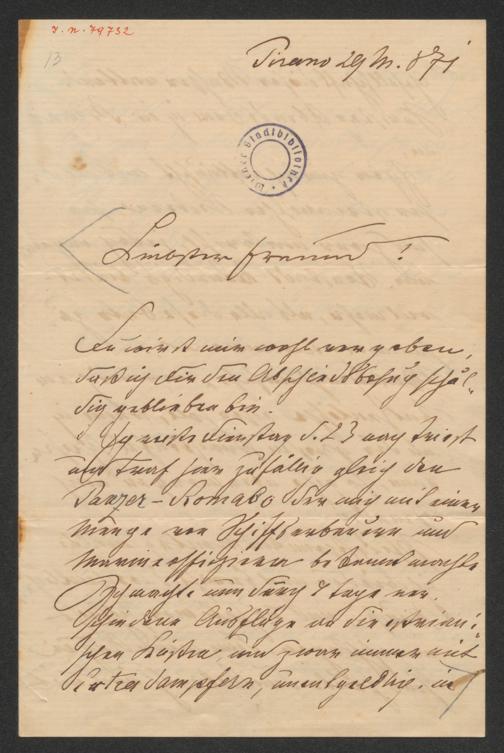 J. N. 79732
13
Pirano 29/III. 871
Wiener Stadtbibliothek
Liebster Freund!
Du wirst mir wohl vergeben,
daß ich Dir den Abschiedsbesuch schul-
dig geblieben bin.
Ich reiste Dienstag d. 23 nach Triest
und traf hier zufällig gleich den
Panzer-Romako der mich mit einer
Menge von Schiffserbauern und
Marineoffizieren bekannt machte
Ich machte nun durch 7 Tage ver-
schiedene Ausflüge an die istriani-
schen Küsten und zwar immer mit
extra Dampfern, unentgeldlich. in